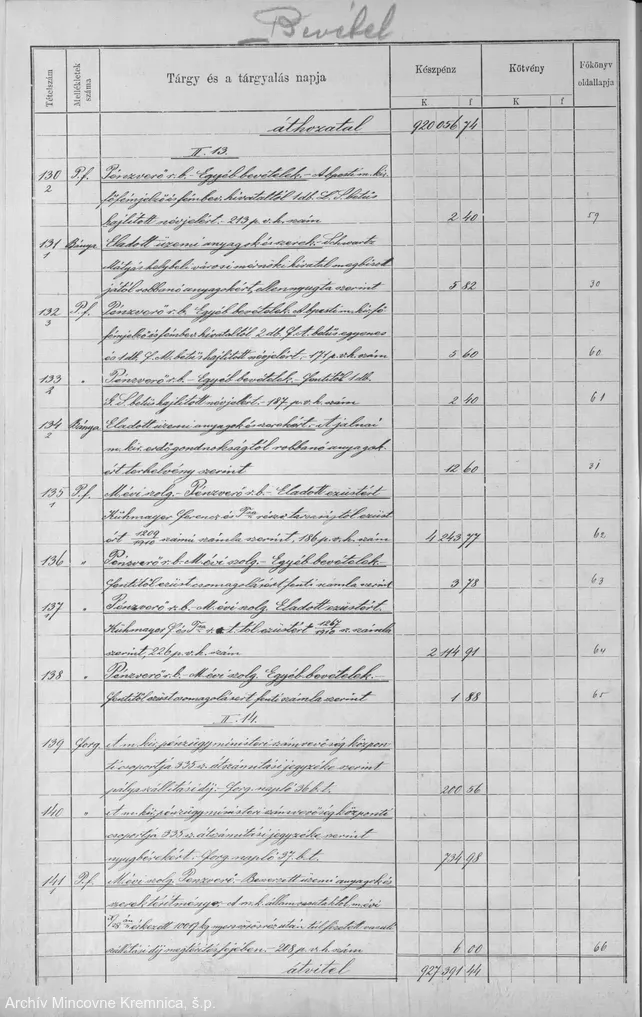 Bevétel
Tételszám
Mellékletek száma
Tárgy és a tárgyalás napja
Készpénz
Kötvény
Főkönyv oldallapja
K f K f
áthozatal 920056 74
II. 13.
130/2 P.f. Pénzverő r.b. Egyéb bevételek.- A bpesti m. kir.
főfémjelző és fémber. hivataltól 1 db. L. S. betűs
hajlított névjelért.- 213 p.v.h. szám 2 40 59
131/1 Bánya Eladott üzemi anyagok és szerek.- Schwartz
Mátyás helybeli városi mérnöki hivatal megbízot-
tjától robbanó anyagokért, Mennyugta szerint 5 82 30
132/3 P.f. Pénzverő r.b. Egyéb bevételek. A bpesti m. kir. fő
fémjelző és fémber. hivataltól 2 db. F. A. betűs egyenes
és 1 db. F. M. betűs hajlított névjelért.- 171 p.v.h. szám 5 60 60
133/2 " Pénzverő r.b.- Egyéb bevételek.- Fentitől 1 db.
K. S. betűs hajlított névjelért.- 187 p.v.h. szám 2 40 61
134/2 Bánya Eladott üzemi anyagok és szerekért.- A jálnai
m. kir. erdőgondnokságtól robbanó anyagok-
ért terhelvény szerint 12 60 31
135/1 P.f. M. évi szolg.- Pénzverő r.b.- Eladott ezüstért
Kühmayer Ferencz és Tsa részv. társaságtól ezüst
ért 1209/1910 számú számla szerint, 186 p.v.h. szám 4243 77 62
136 " Pénzverő r.b. M. évi szolg.- Egyéb bevételek.-
Fentitől ezüst csomagolásért fenti számla szerint 3 78 63
137 " Pénzverő r.b.- M. évi szolg. Eladott ezüstért.
Kühmayer F. és Tsa r. t.-tól ezüstért 1267/1910 sz. számla
szerint, 226 p.v.h. szám 2114 91 64
138 " Pénzverő r.b.- M. évi szolg. Egyéb bevételek.-
Fentitől ezüst csomagolásért fenti számla szerint 1 88 65
II. 14.
139 Forg. A m. kir. pénzügyministeri számvevőség közpon-
ti csoportja 335 sz. átszámítási jegyzéke szerint
pályaszállítási díj.- Forg. napló 36 b.t. 200 56
140 " A m. kir. pénzügyministeri számvevőség központi
csoportja 335 sz. átszámítási jegyzéke szerint
nyugbérekért.- Forg. napló 37. b.t. 734 98
141 P.f. M. évi szolg. Pénzverő.- Beszerzett üzemi anyagok és
szerek térítménye.- A m. k. államvasutaktól m. évi
érkezett 10019 kg nyersvörösréz után túlfizetett vasuti
szállítási díj megtérítés fejében.- 208 p.v.h. szám 6 00 66
átvitel 927391 44
Archív Mincovne Kremnica, š.p.